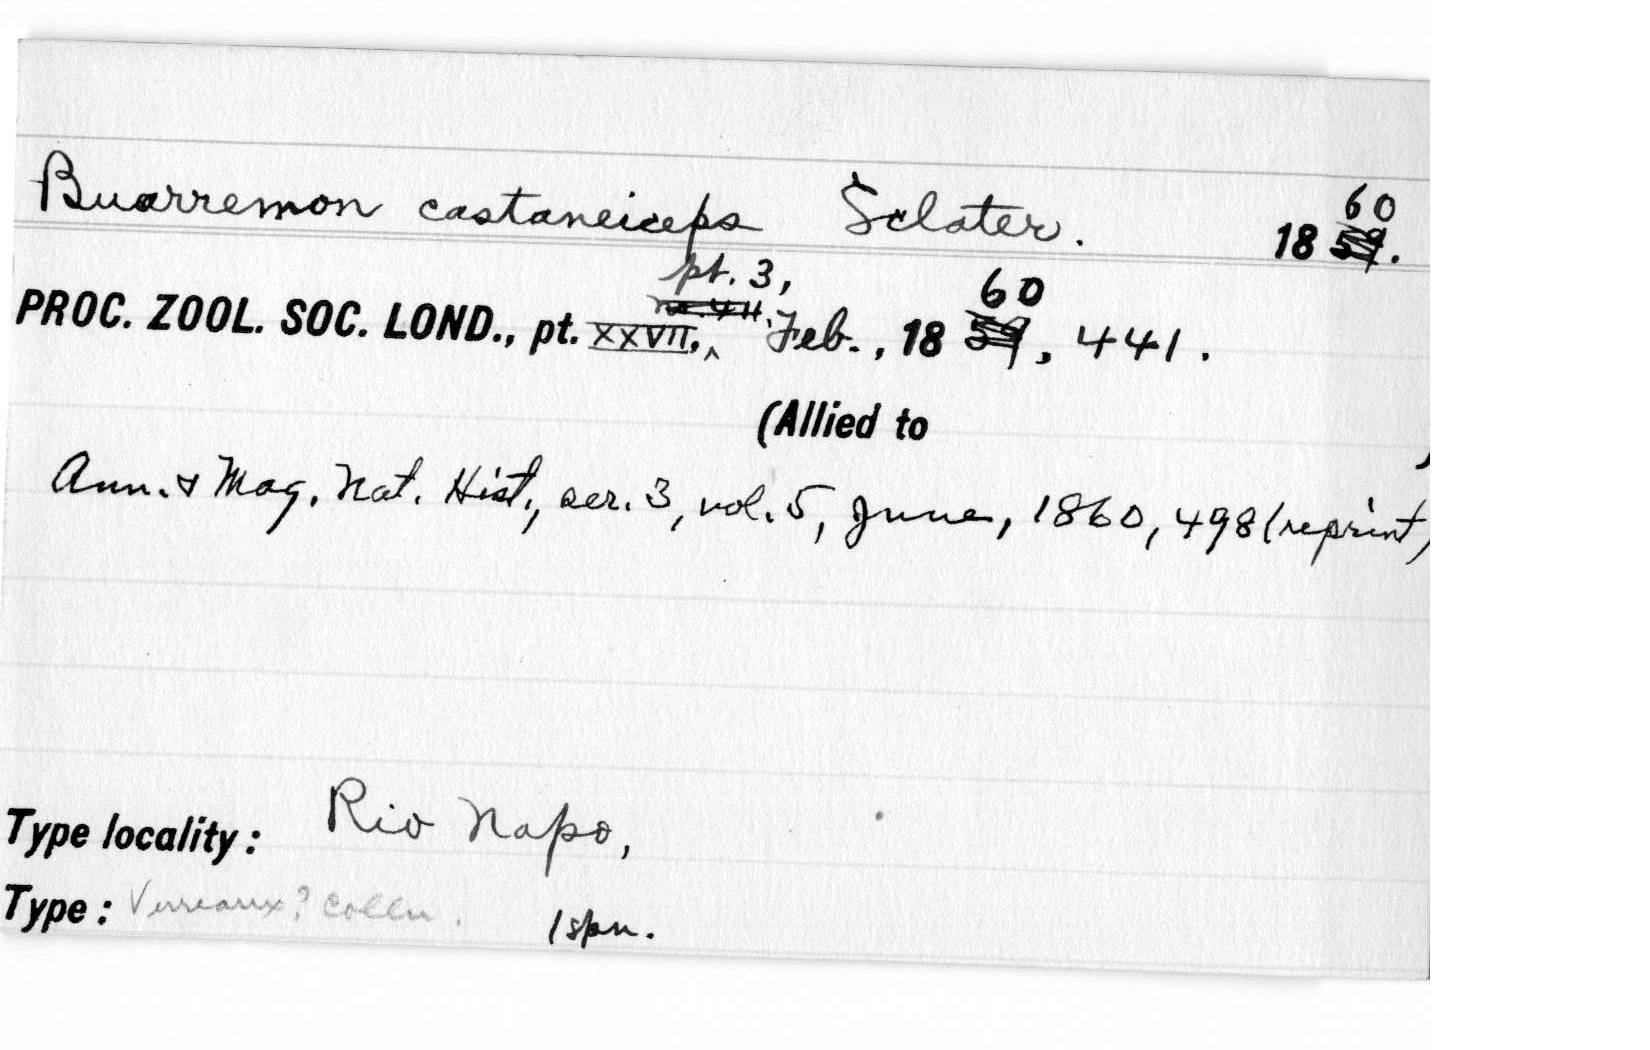 Buarremon castaneiceps Sclater. 1859. 60
pt. 3, 60
PROC. ZOOL. SOC. LOND., pt. XXVII., Feb., 1859, 441.
(Allied to )
Ann. & Mag. Nat. Hist., ser. 3, vol. 5, June, 1860, 498 (reprint)
Type locality: Rio Napo,
Type: Verreaux? Colln. 1 spn.